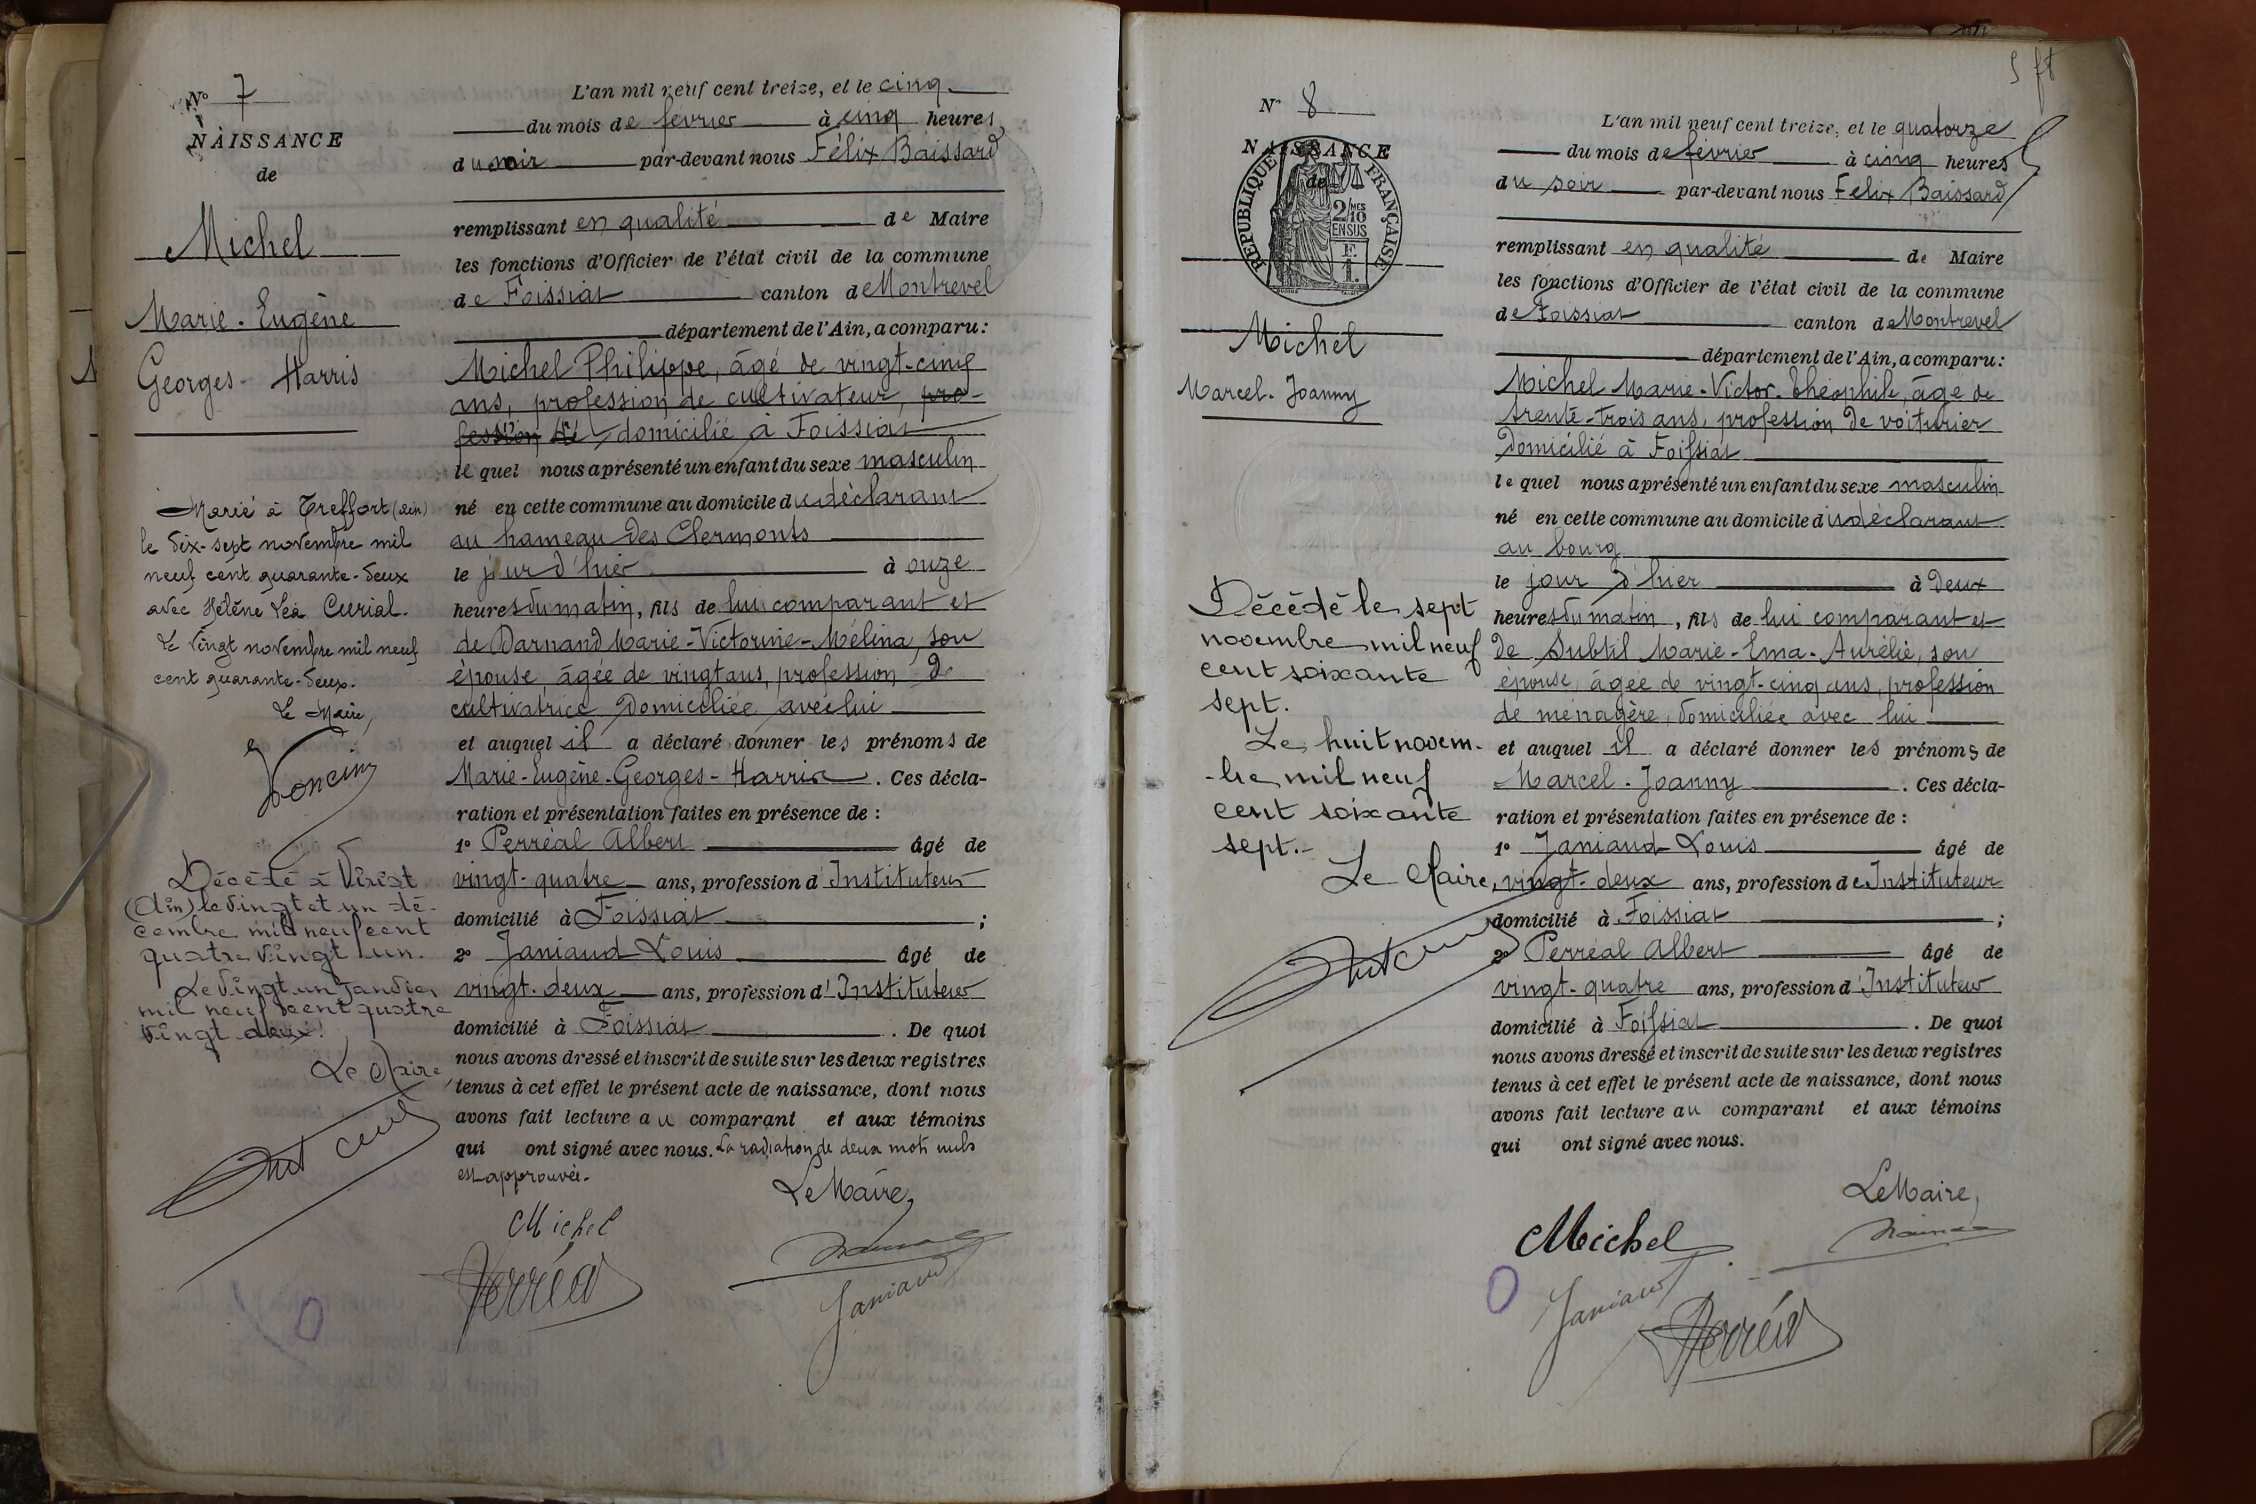 N° 7
NAISSANCE
de
Michel
Marie-Eugène
Georges-Harris
Marié à Treffort (Ain)
le dix-sept novembre mil
neuf cent quarante-deux
avec Hélène Léa Curial.
Le vingt novembre mil neuf
cent quarante-deux.
Le Maire,
Décédé à Viriat
(Ain) le vingt et un dé-
cembre mil neuf cent
quatre vingt un.
Le vingt un Janvier
mil neuf cent quatre
vingt deux.
Le Maire
L'an mil neuf cent treize, et le cinq
du mois de février à cinq heures
du soir par-devant nous Félix Baissard
remplissant en qualité de Maire
les fonctions d'Officier de l'état civil de la commune
de Foissiat canton de Montrevel
département de l'Ain, a comparu :
Michel Philippe, âgé de vingt-cinq
ans, profession de cultivateur, pro-
fession de domicilié à Foissiat
lequel nous a présenté un enfant du sexe masculin
né en cette commune au domicile du déclarant
au hameau des Clermonts
le jour d'hier à onze
heures du matin, fils de lui comparant et
de Darnand Marie-Victorine-Mélina, son
épouse, âgée de vingt ans, profession de
cultivatrice domiciliée avec lui
et auquel il a déclaré donner les prénoms de
Marie-Eugène-Georges-Harris. Ces décla-
ration et présentation faites en présence de :
1° Perréal Albert âgé de
vingt-quatre ans, profession d'Instituteur
domicilié à Foissiat ;
2° Janiaud Louis âgé de
vingt-deux ans, profession d'Instituteur
domicilié à Foissiat . De quoi
nous avons dressé et inscrit de suite sur les deux registres
tenus à cet effet le présent acte de naissance, dont nous
avons fait lecture au comparant et aux témoins
qui ont signé avec nous. La radiation de deux mots nuls
est approuvée.
Le Maire,
Michel
Perréal
Janiaud
N° 8
NAISSANCE
de
RÉPUBLIQUE FRANÇAISE
2/10MES
EN SUS
Michel
Marcel-Joanny
Décédé le sept
novembre mil neuf
cent soixante
sept.
Le huit novem-
-bre mil neuf
cent soixante
sept.-
Le Maire,
L'an mil neuf cent treize, et le quatorze
du mois de février à cinq heures
du soir par-devant nous Félix Baissard
remplissant en qualité de Maire
les fonctions d'Officier de l'état civil de la commune
de Foissiat canton de Montrevel
département de l'Ain, a comparu :
Michel Marie-Victor-Théophile, âgé de
trente-trois ans, profession de voiturier
domicilié à Foissiat
lequel nous a présenté un enfant du sexe masculin
né en cette commune au domicile du déclarant
au bourg
le jour d'hier à deux
heures du matin, fils de lui comparant et
de Subtil Marie-Ema-Aurélie, son
épouse, âgée de vingt-cinq ans, profession
de ménagère, domiciliée avec lui
et auquel il a déclaré donner les prénoms de
Marcel-Joanny . Ces décla-
ration et présentation faites en présence de :
1° Janiaud Louis âgé de
vingt-deux ans, profession de Instituteur
domicilié à Foissiat ;
2° Perréal Albert âgé de
vingt-quatre ans, profession d'Instituteur
domicilié à Foissiat . De quoi
nous avons dressé et inscrit de suite sur les deux registres
tenus à cet effet le présent acte de naissance, dont nous
avons fait lecture au comparant et aux témoins
qui ont signé avec nous.
Le Maire,
Michel
Janiaud
Perréal